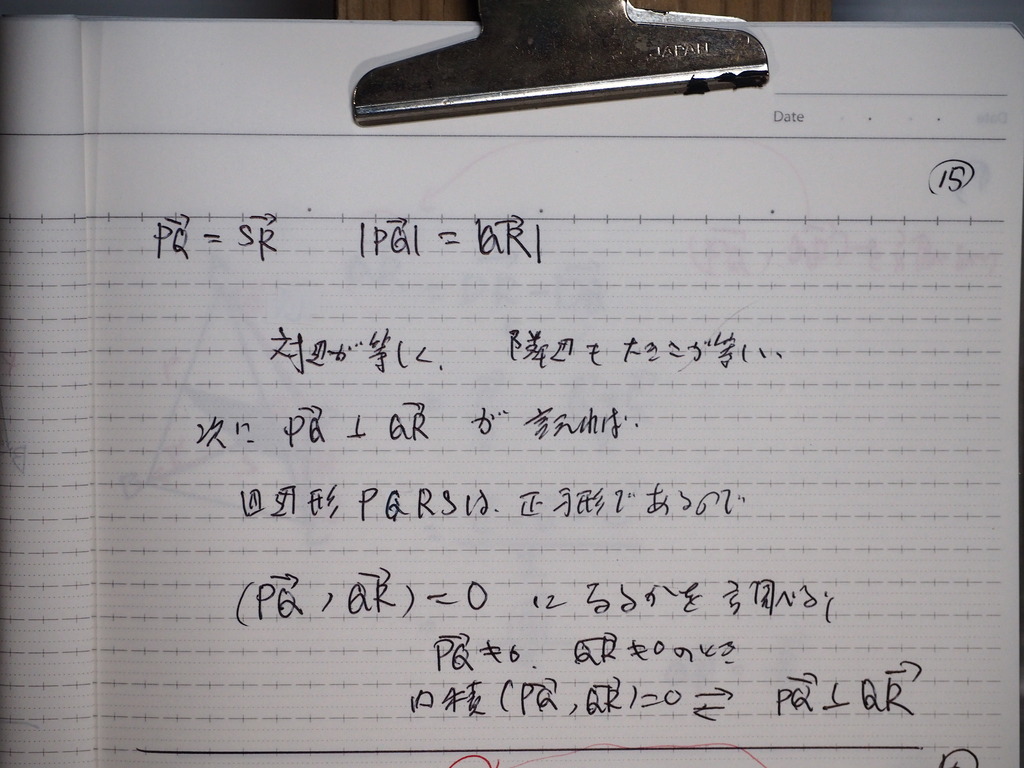 JAPAN
Date
⑮
PQ→ = SR→ |PQ→| = |QR→|
対辺が等しく、 隣辺も大きさが等しい、
次に PQ→ ⊥ QR→ が 言えれば、
四辺形 PQRSは、正方形であるので
(PQ→, QR→) = 0 になるかを調べる;
PQ→ ≠ 0、 QR→ ≠ 0 のとき
内積 (PQ→, QR→) = 0 ⇄ PQ→ ⊥ QR→